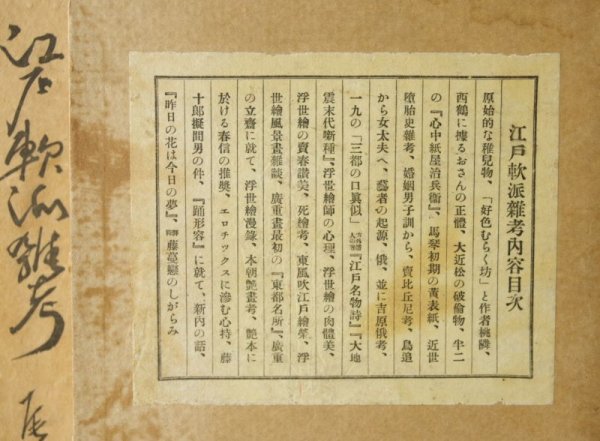 江戸軟派雑考内容目次
原始的な稚兒物、「好色むらく坊」と作者桃隣、
西鶴に據るおさんの正體、大近松の破倫物、半二
の『心中紙屋治兵衞』、馬琴初期の黄表紙、近世
堕胎史雜考、婚姻男子訓から、賣比丘尼考、鳥追
から女太夫へ、藝者の起源、俄、並に吉原俄考、
一九の「三都の口眞似」『江戸名物詩』『大地
震末代噺種』、浮世繪師の心理、浮世繪の肉體美、
浮世繪の賣春讃美、死繪考、東風吹江戸繪榮、浮
世繪風景畫雜談、廣重畫最初の『東都名所』、廣重
の立齋に就て、浮世繪漫錄、本朝艶畫考、艶本に
於ける春信の推奬、エロチツクスに滲む心持、藤
十郎擬間男の件、『踊形容』に就て、新内の話、
『昨日の花は今日の夢』、附錄藤蔓戀のしがらみ
江戸軟派雑考